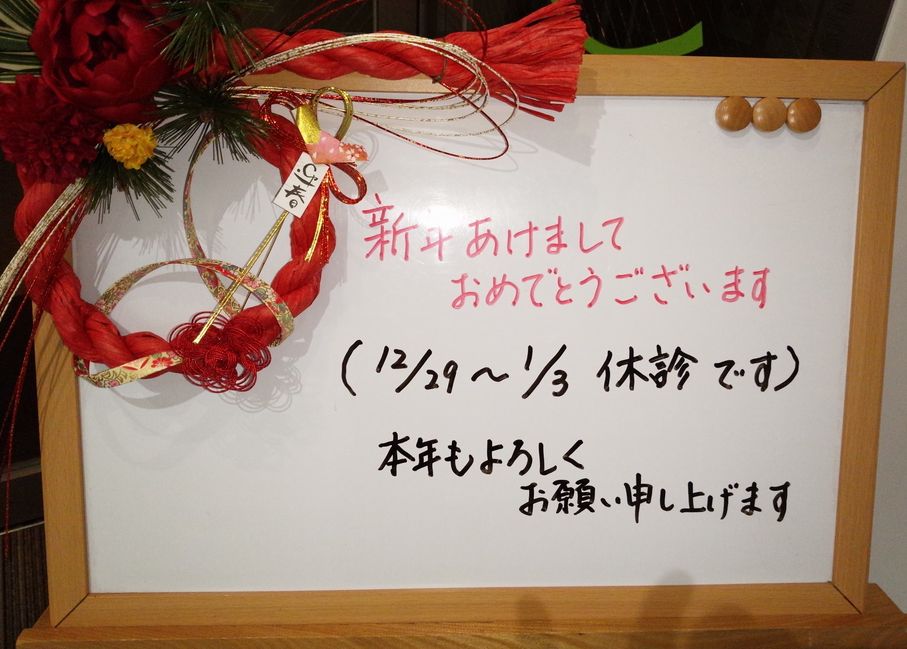 迎春
新年あけまして
おめでとうございます
(12/29～1/3 休診です)
本年もよろしく
お願い申し上げます